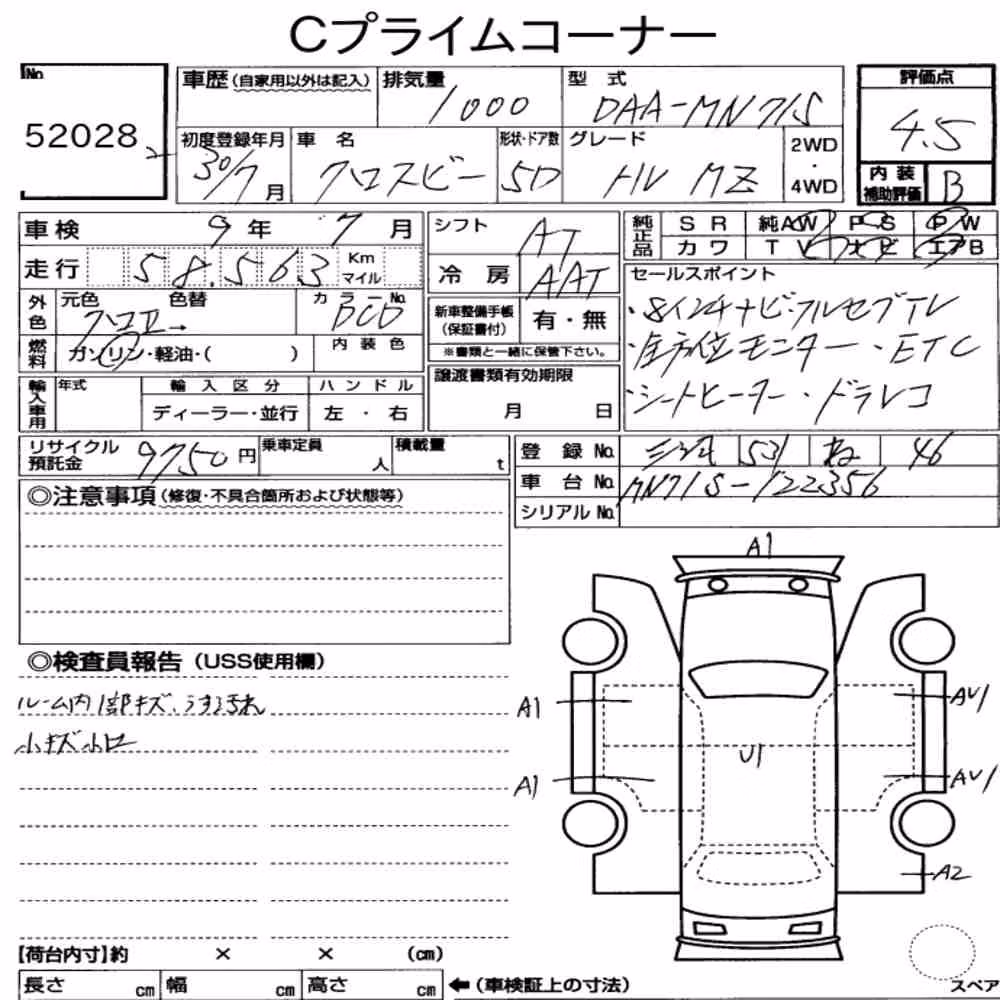 Cプライムコーナー
No.
52028
車歴(自家用以外は記入)
排気量
1000
型式
DAA-MN71S
評価点
4.5
初度登録年月
30/7月
車名
クロスビー
形状・ドア数
5D
グレード
HV MZ
2WD
・
4WD
内装
補助評価
B
車検 9年 7月
走行 58,563 Km マイル
外色
元色
色替
クロII→
カラーNo.
DCD
燃料
ガソリン・軽油・( )
内装色
輸入車用
年式
輸入区分
ディーラー・並行
ハンドル
左・右
シフト
AT
冷房
AAT
新車整備手帳
(保証書付)
有・無
※書類と一緒に保管下さい。
譲渡書類有効期限
月 日
純正品
SR 純AW PS PW
カワ TV ナビ エアB
セールスポイント
・8インチナビ・フルセグTV
・全方位モニター・ETC
・シートヒーター・ドラレコ
リサイクル
預託金
9750円
乗車定員
人
積載量
t
登録No.
531 ね 46
車台No.
MN71S-122356
シリアルNo.
◎注意事項(修復・不具合箇所および状態等)
◎検査員報告(USS使用欄)
ルーム内部キズ、うす汚れ
小キズ小凹
A1
A1
A1
U1
AU1
AU1
A2
【荷台内寸】約 × × (cm)
長さ cm 幅 cm 高さ cm ←(車検証上の寸法)
スペア